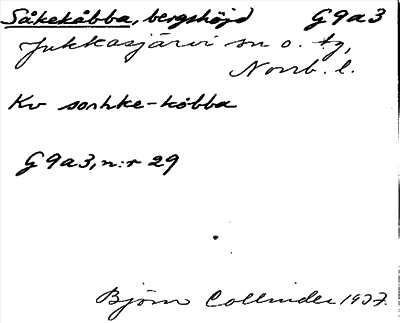 Såkekåbba, bergshöjd G9a3
Jukkasjärvi sn o. tg,
Norrb. l.
Kv sorhke-kobba
G9a3, n:r 29
Björn Collinder 1937.